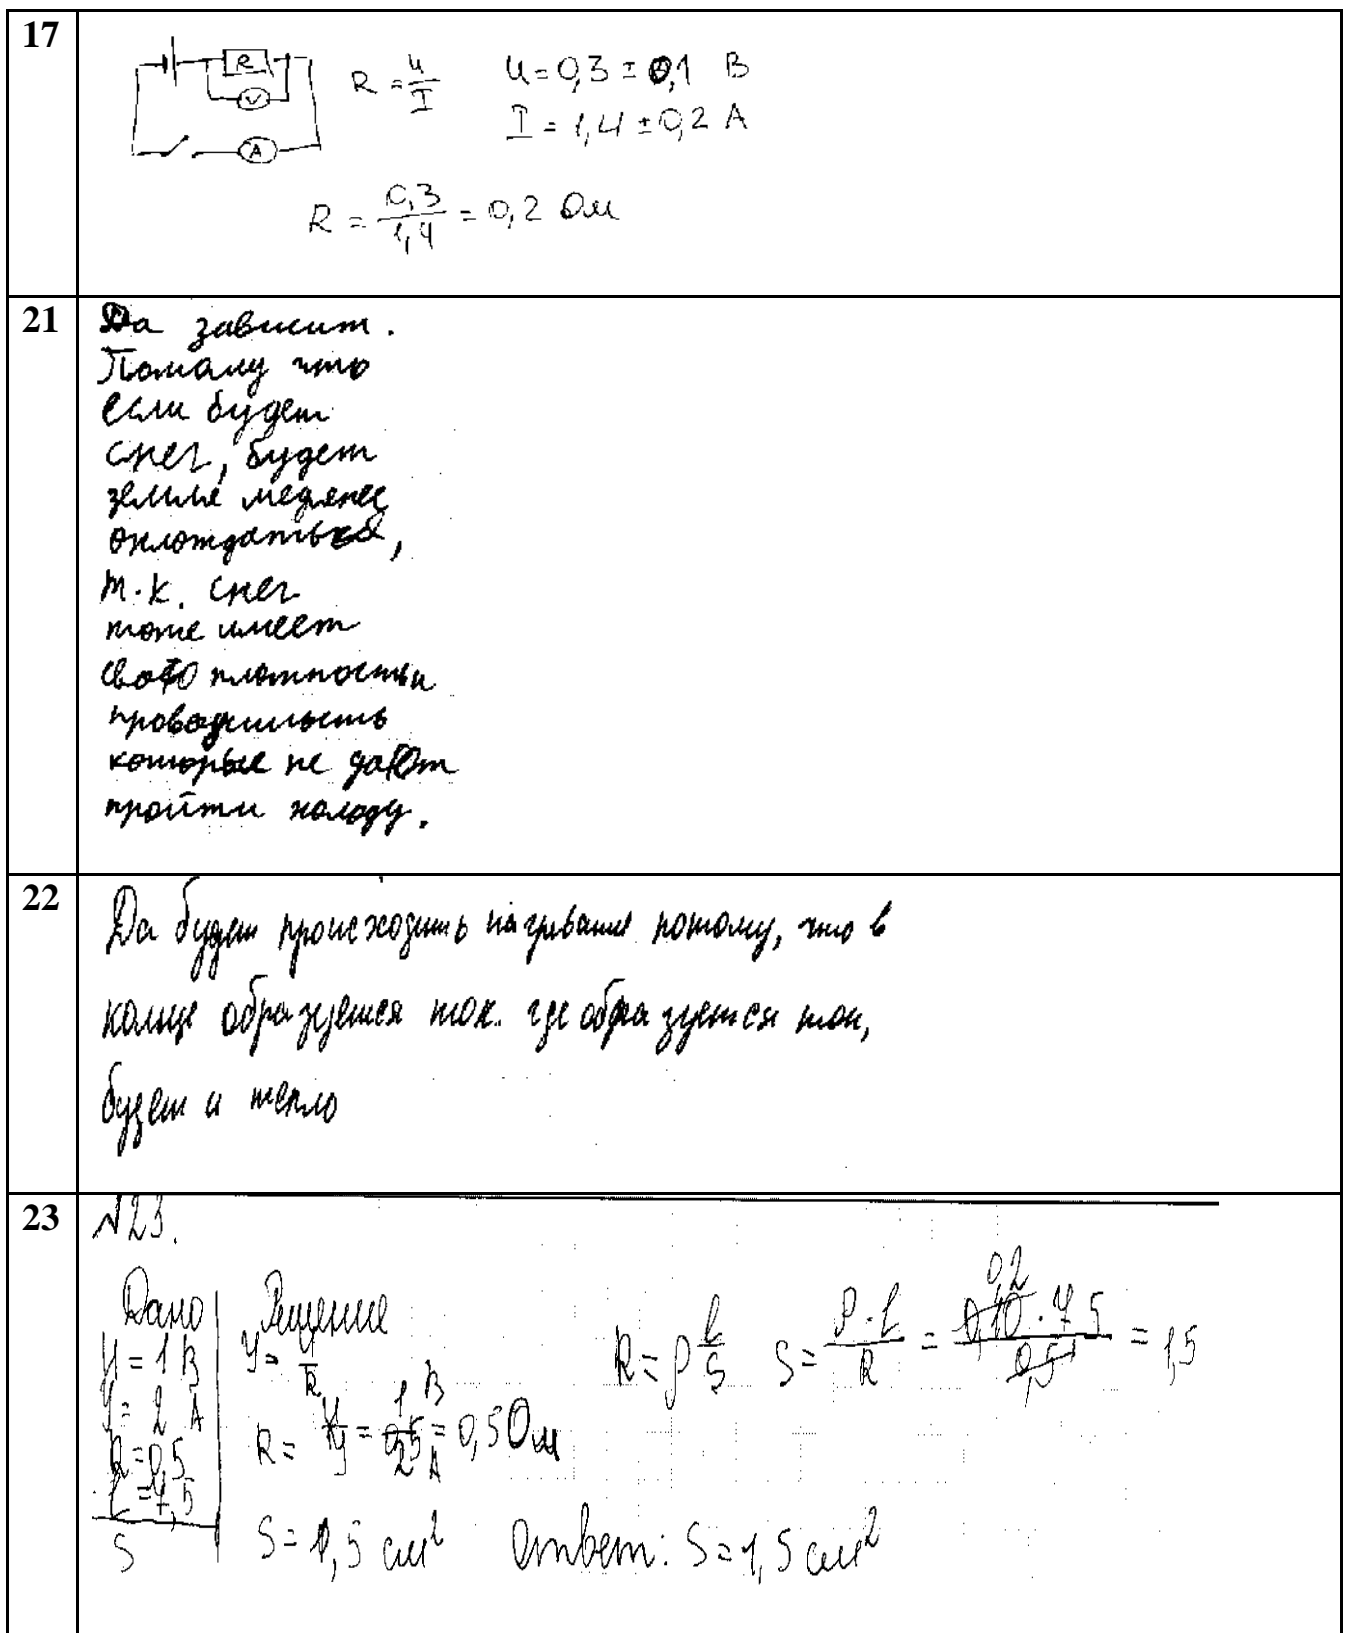 17
R
V
A
R = u/I
u = 0,3 ± 0,1 В
I = 1,4 ± 0,2 А
R = 0,3/1,4 = 0,2 Ом
21
Да зависит.
Потаму что
если будет
снег, будет
земля
охлождаться,
т.к. снег
тоже имеет
свою плотность и
которые не дают
пройти холоду.
22
Да будет происходить нагревание потому, что в
кольце образуется ток. где образуется ток,
будет и тепло
23
№23.
Дано
Решение
U = 1 В
I = 2 А
R = 0,5
l = 7,5
S
I = U/R
R = U/I = 1 В/2 А = 0,5 Ом
R = ρ l/S
S = ρ·l/R = = 1,5
S = 1,5 см²
Ответ: S = 1,5 см²